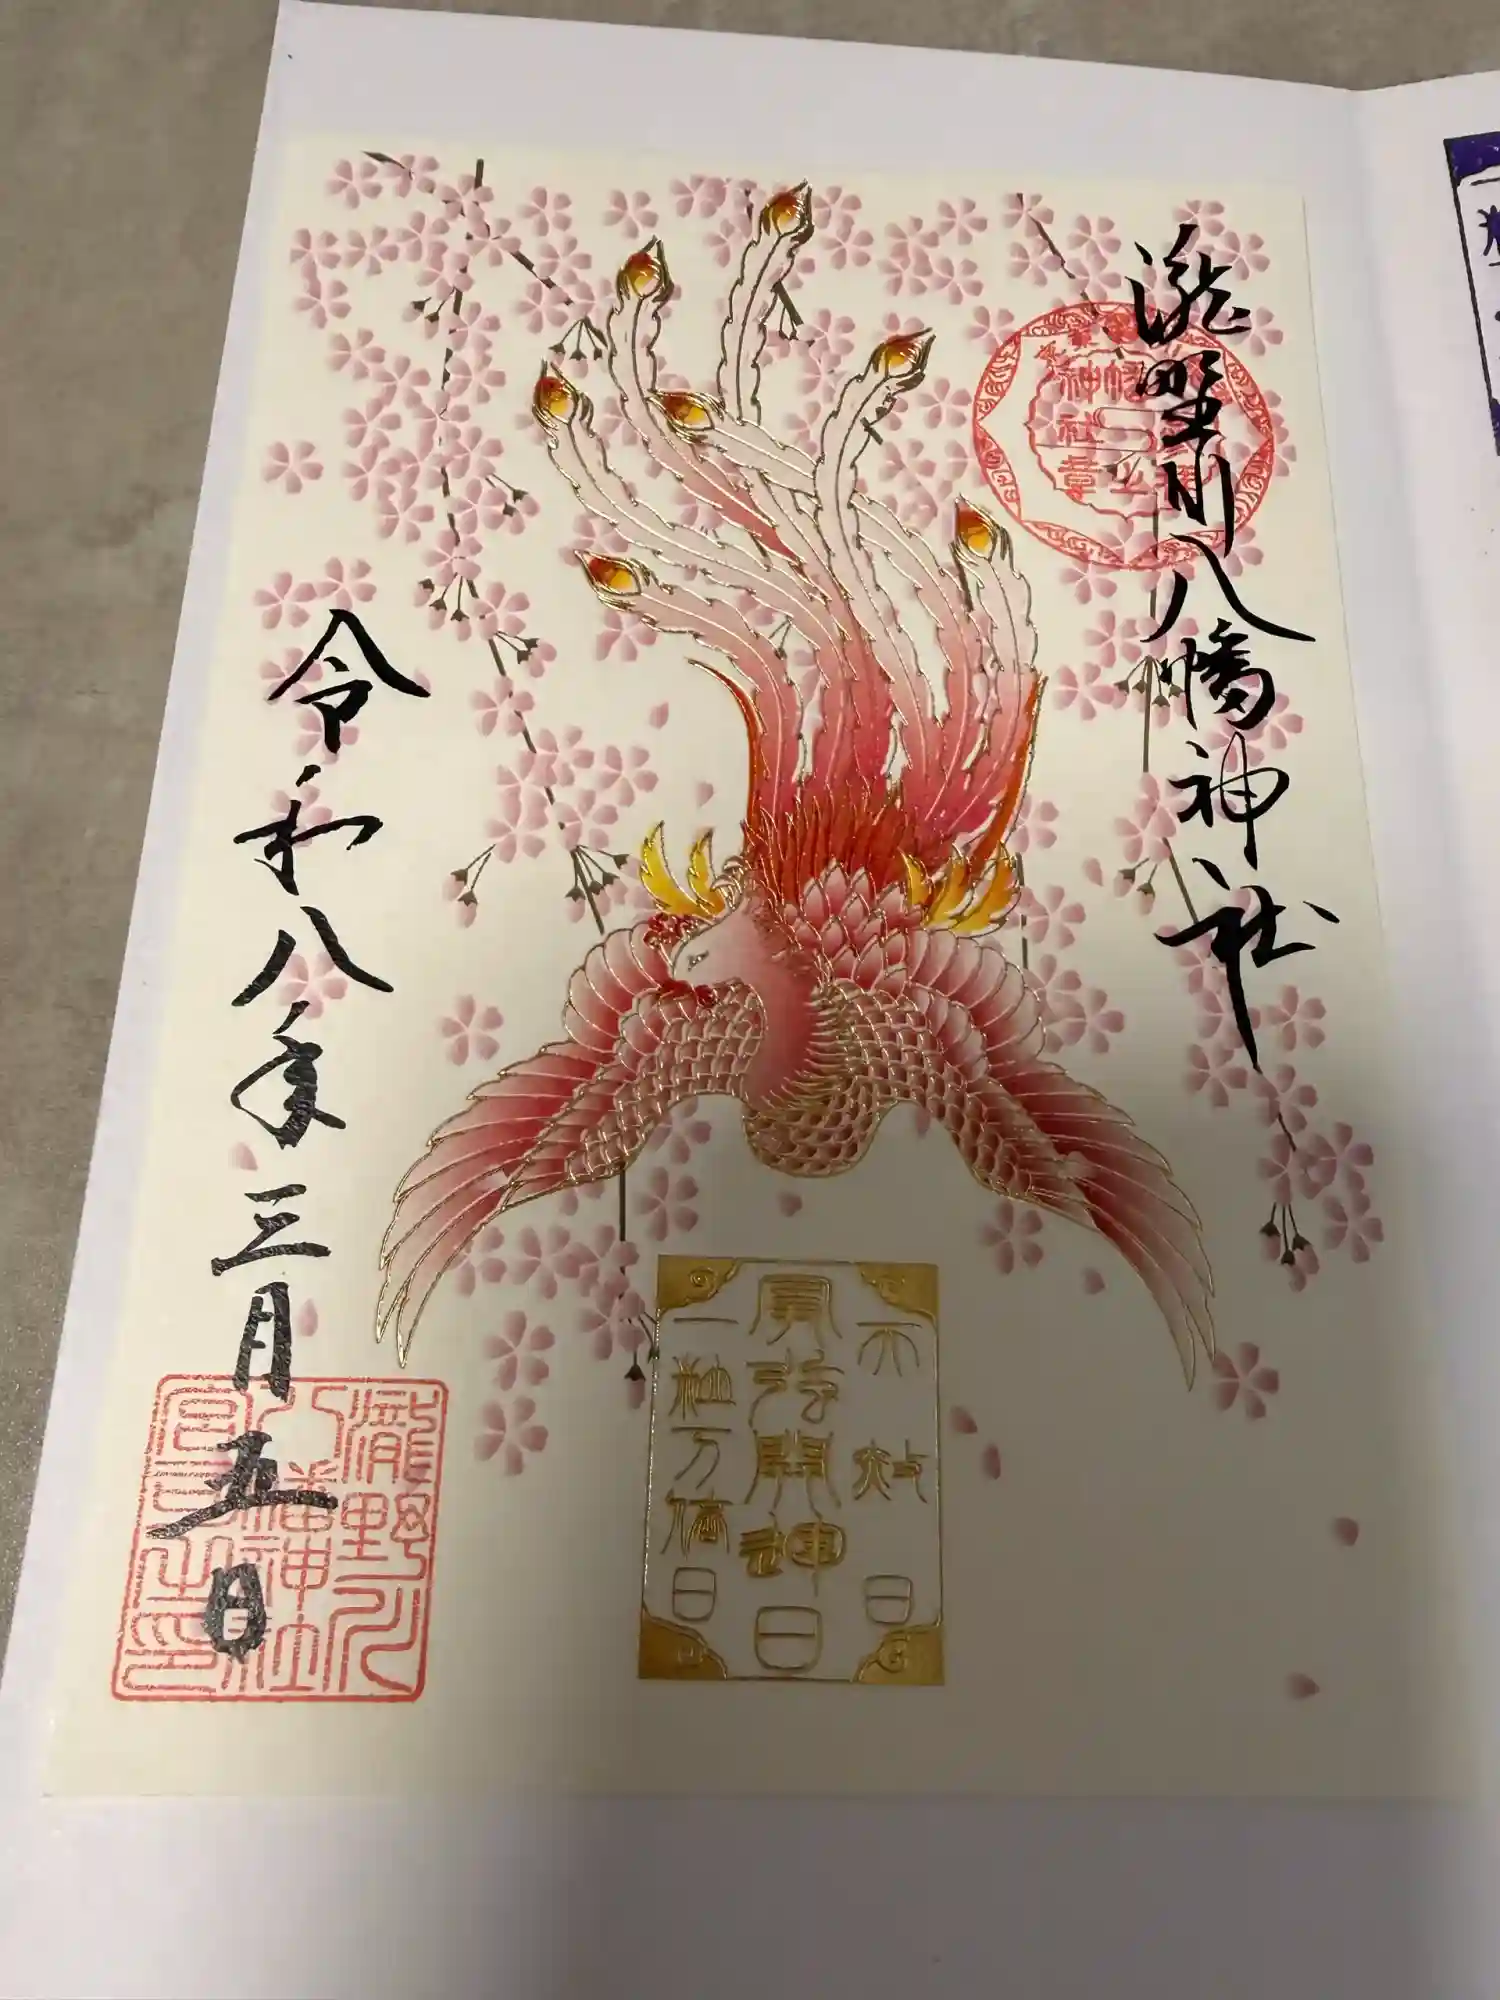 滝野川八幡神社
八幡神社章
天赦日
寅若開神日
一粒万倍日
令和八年三月五日
瀧野川
八幡神社
宮司之印